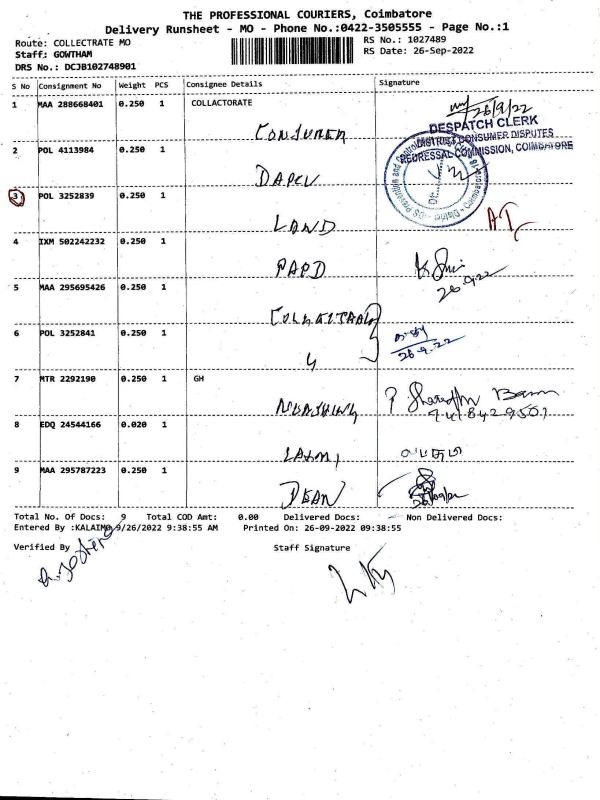 THE PROFESSIONAL COURIERS, Coimbatore
Delivery Runsheet - MO - Phone No.:0422-3505555 - Page No.:1
Route: COLLECTRATE MO
RS No.: 1027489
Staff: GOWTHAM
RS Date: 26-Sep-2022
DRS No.: DCJB102748901
S No Consignment No Weight PCS Consignee Details Signature
1 MAA 288668401 0.250 1 COLLACTORATE
26/9/22
CONSUMER
DESPATCH CLERK
DISTRICT CONSUMER DISPUTES
REDRESSAL COMMISSION, COIMBATORE
2 POL 4113984 0.250 1
3 POL 3252839 0.250 1
LAND
4 IXM 502242232 0.250 1
PAPD
26.9.22
5 MAA 295695426 0.250 1
6 POL 3252841 0.250 1
26-9-22
7 MTR 2292190 0.250 1 GH
7418429507
8 EDQ 24544166 0.020 1
9 MAA 295787223 0.250 1
DEAN
Total No. Of Docs: 9 Total COD Amt: 0.00 Delivered Docs: Non Delivered Docs:
Entered By :KALAIMO 9/26/2022 9:38:55 AM Printed On: 26-09-2022 09:38:55
Verified By Staff Signature